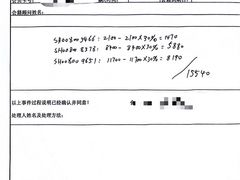 会籍顾问姓名:
SH008009466: 2100-2100×30%=1470
SH00800 8376: 8400-8400×30%=5880
SH00800 9651: 11700-11700×30%=8190
15540
以上事件过程说明已经确认并同意!
处理人姓名及处理方法: